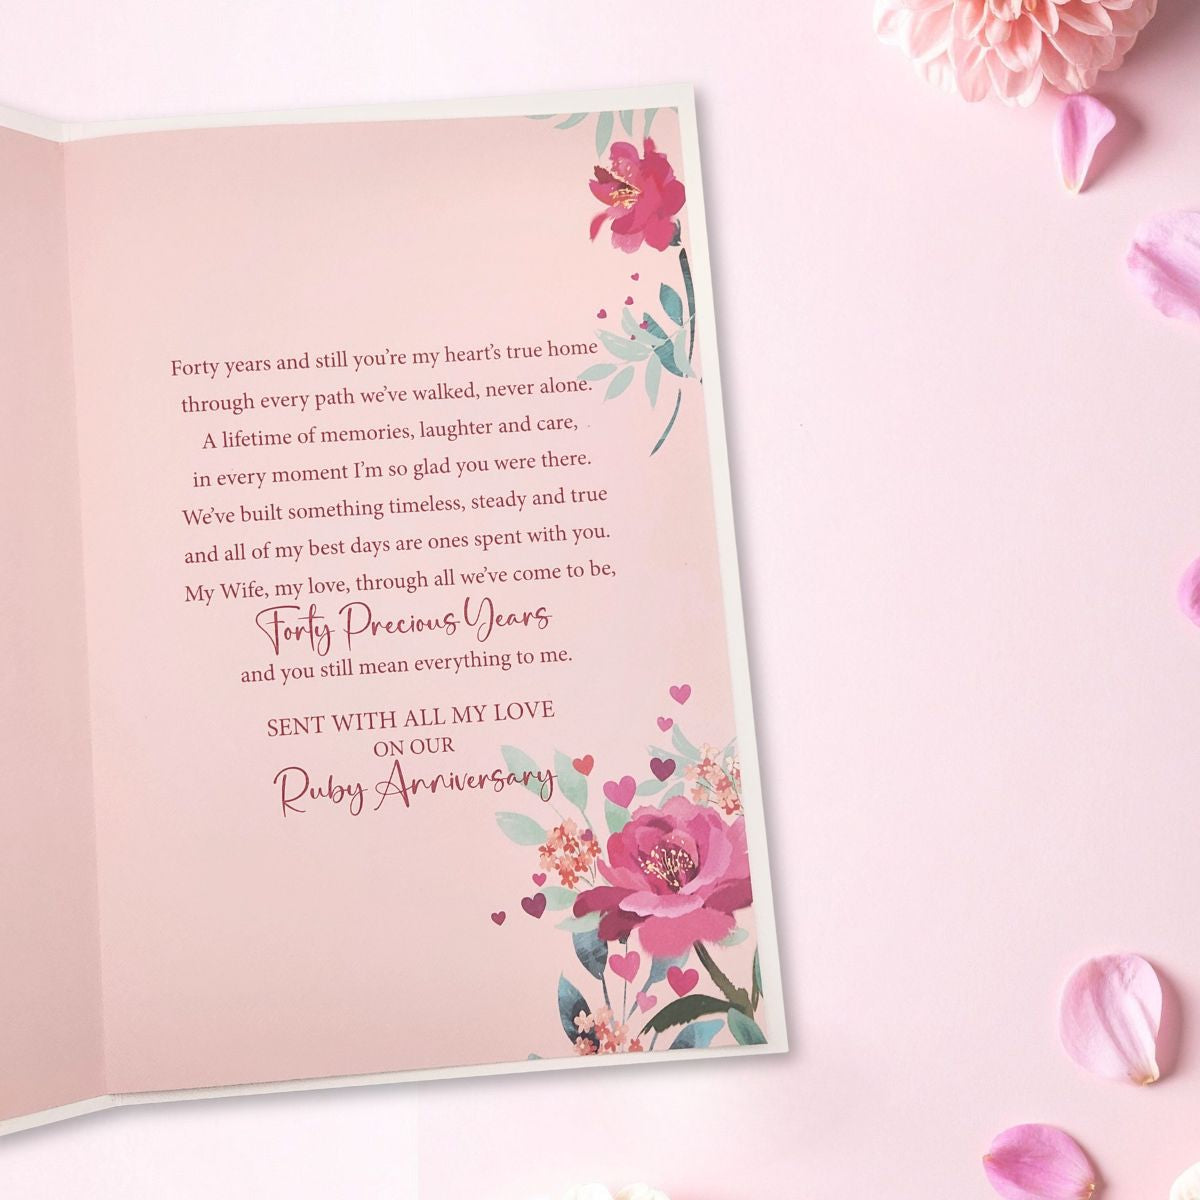 Forty years and still you're my heart's true home
through every path we've walked, never alone.
A lifetime of memories, laughter and care,
in every moment I'm so glad you were there.
We've built something timeless, steady and true
and all of my best days are ones spent with you.
My Wife, my love, through all we've come to be,
Forty Precious Years
and you still mean everything to me.
SENT WITH ALL MY LOVE
ON OUR
Ruby Anniversary